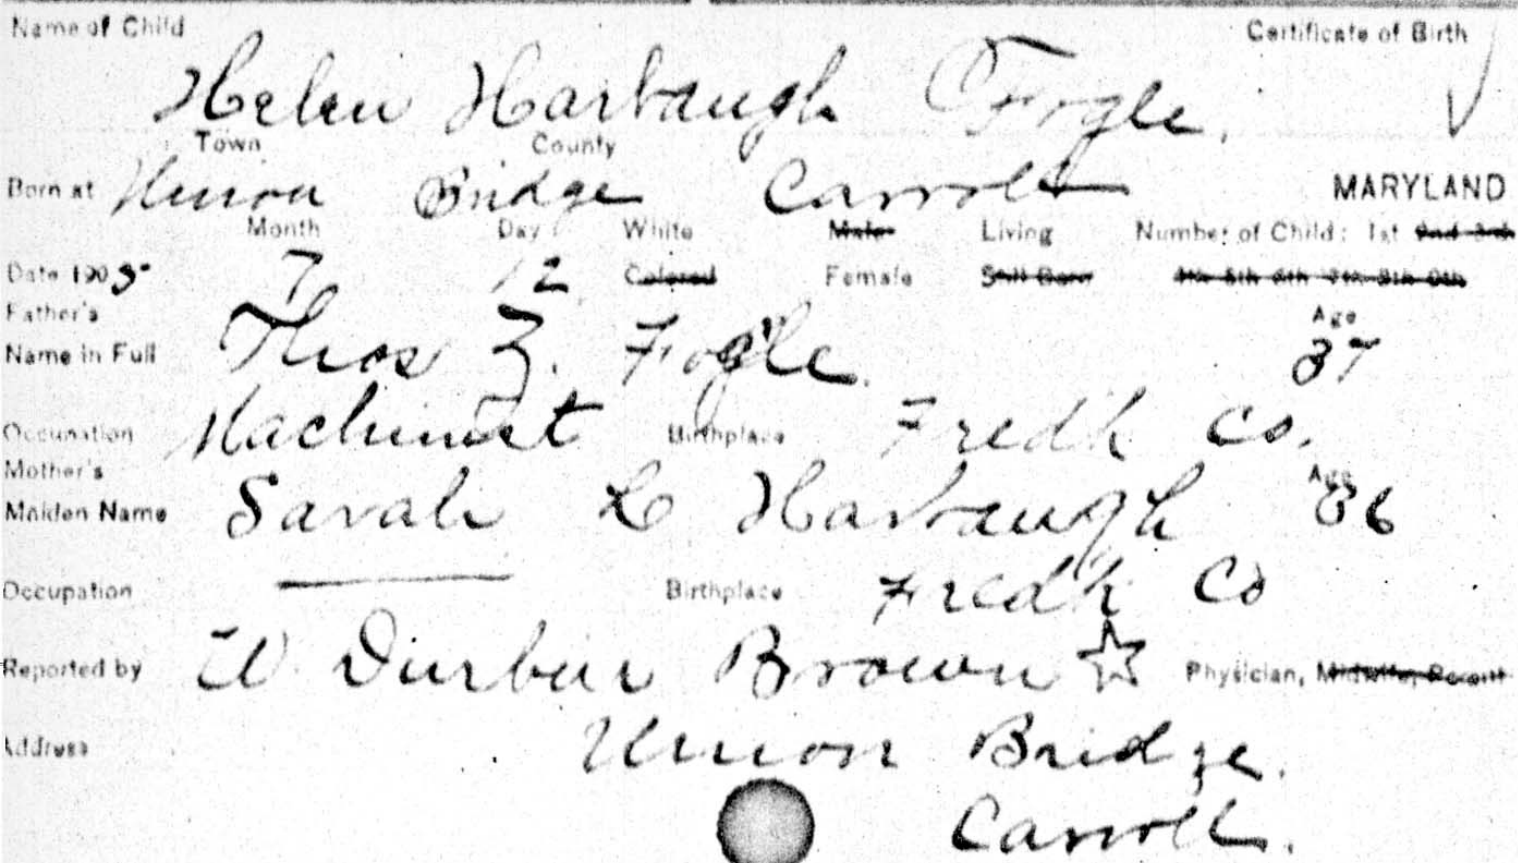 Name of Child Certificate of Birth
Helen Harbaugh Fogle.
Town County
Born at Union Bridge Carroll MARYLAND
Month Day White Male Living Number of Child: 1st 2nd 3rd
Date 1905 7 12 Colored Female Still Born 4th 5th 6th 7th 8th 9th
Father's Age
Name in Full Thos Z. Fogle 37
Occupation Machinist Birthplace Fredk Co.
Mother's Age
Maiden Name Sarah L Harbaugh 36
Occupation Birthplace Fredk Co
Reported by W Durbin Brown Physician, Midwife, Parent
Address Union Bridge.
Carroll.